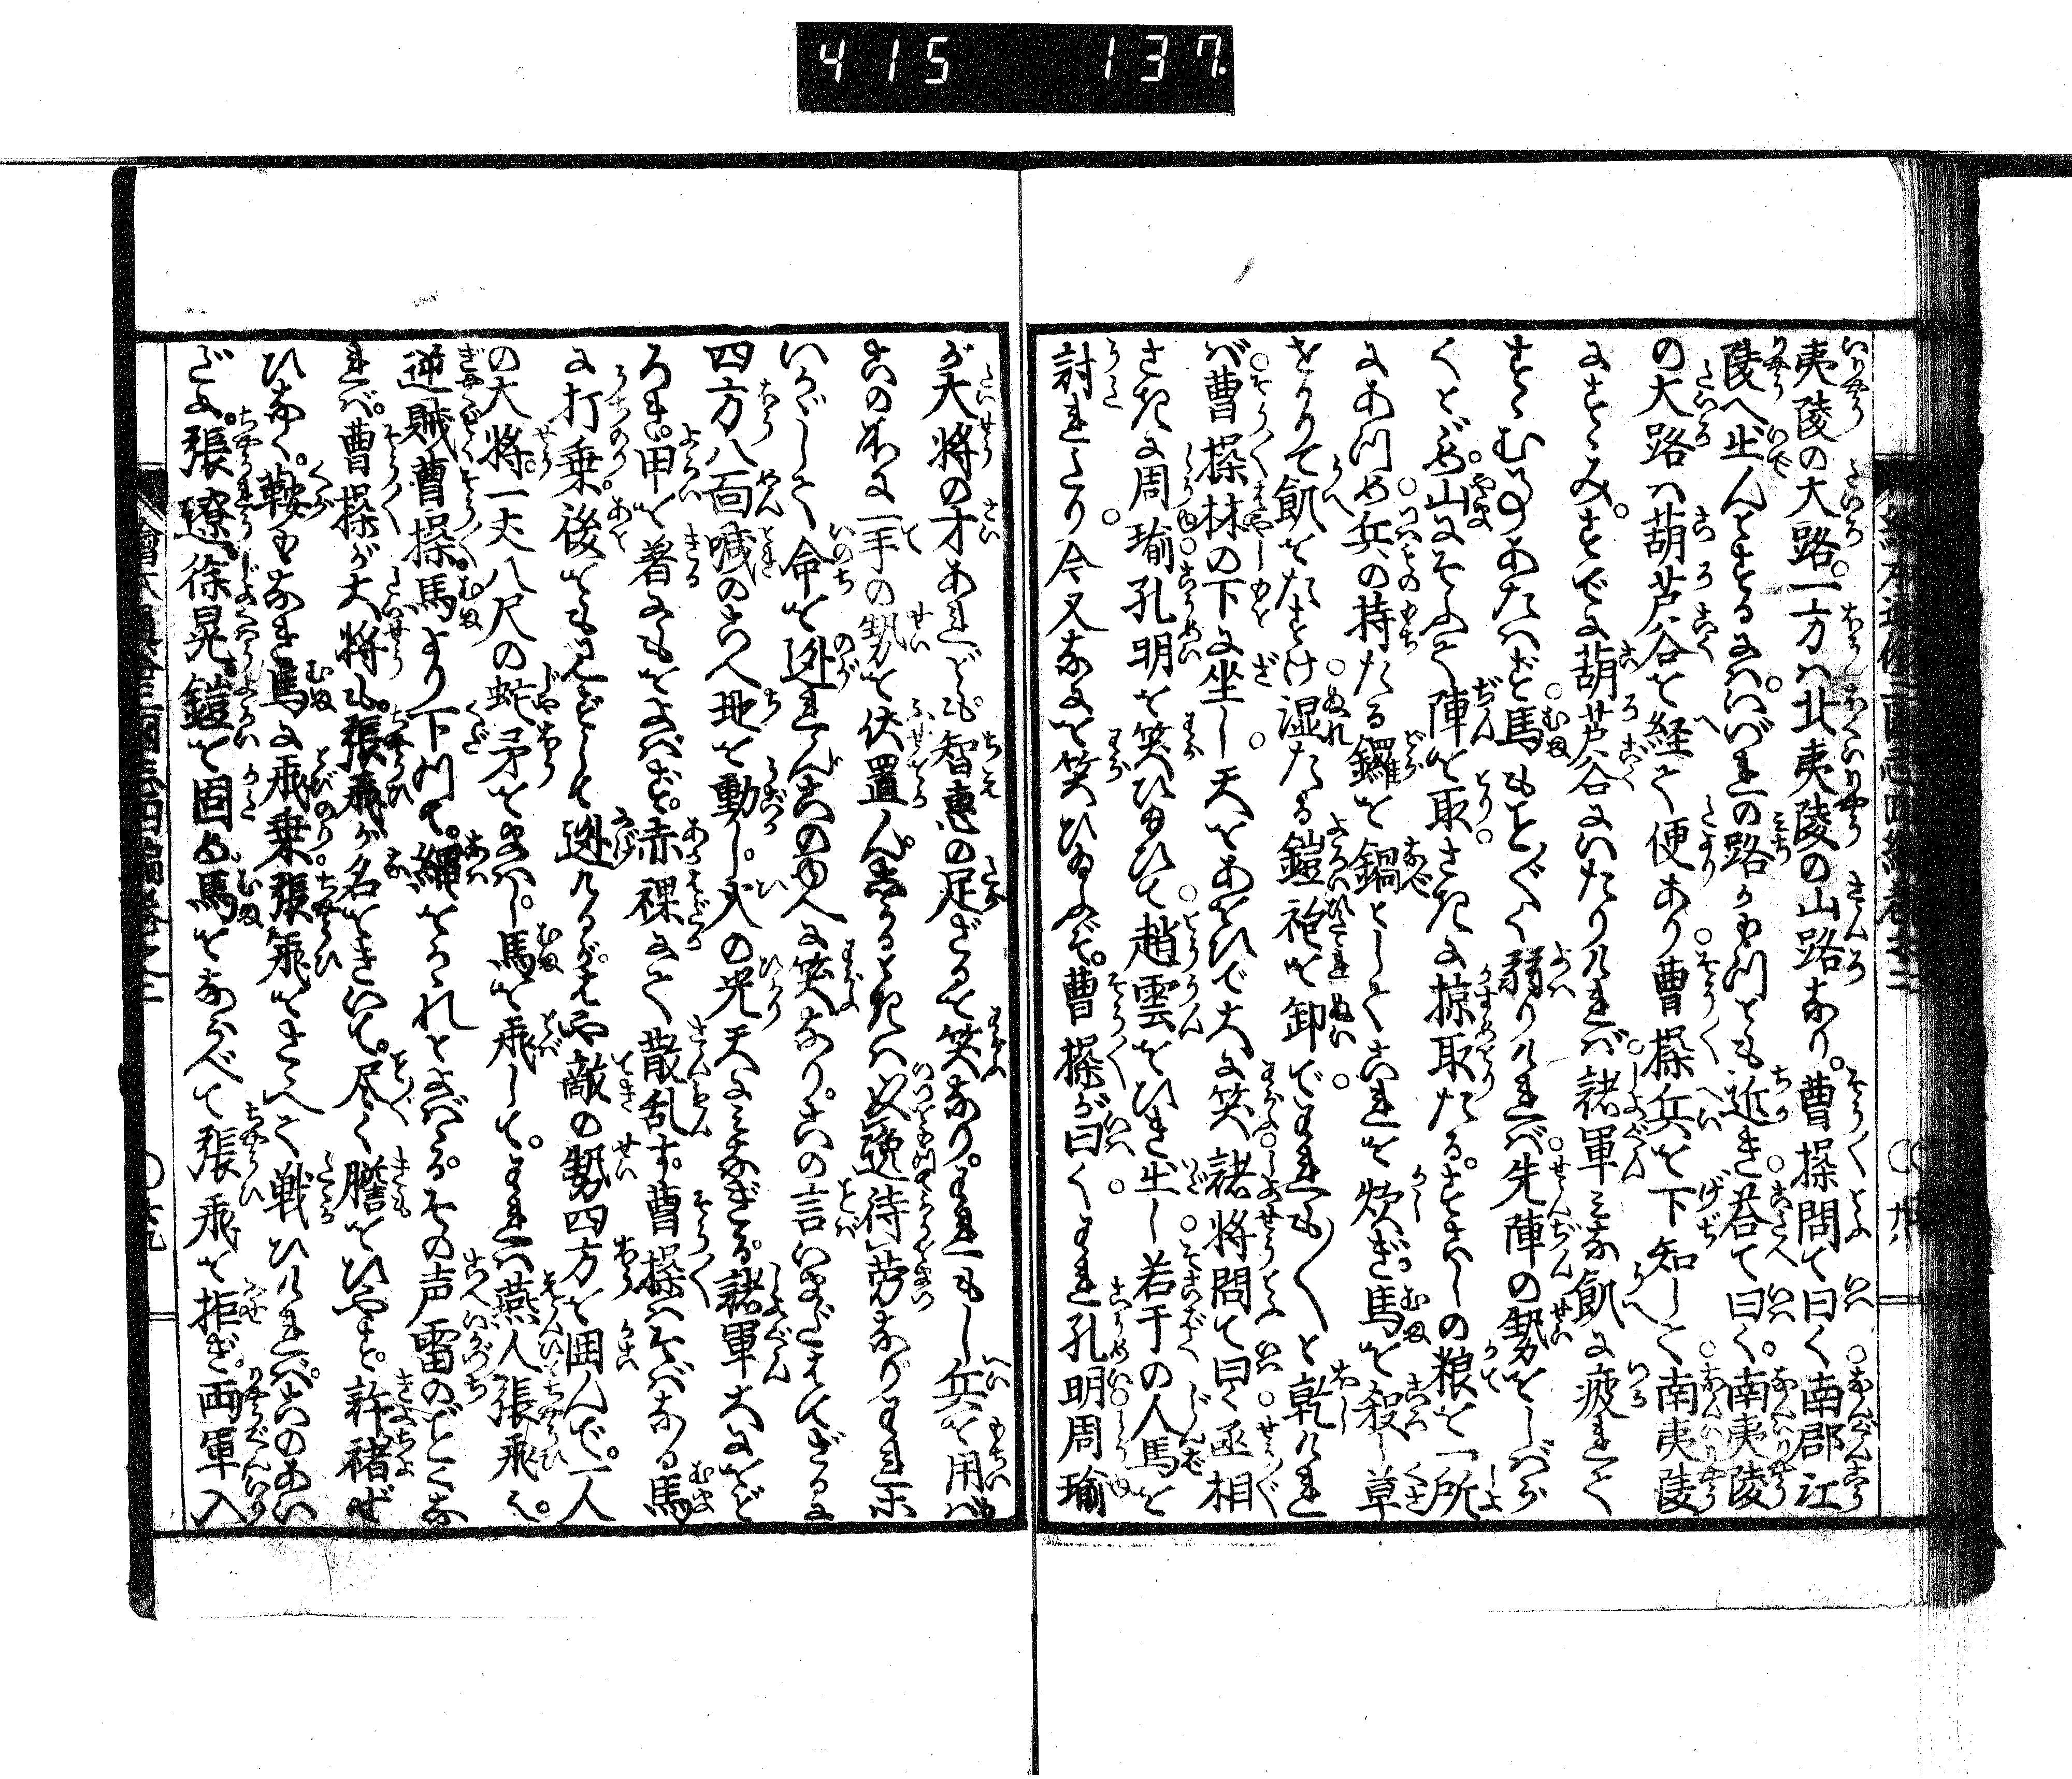 415 137
夷陵の大路。一方ハ北夷陵の山路なり。曹操問て曰く南郡江
陵へ出んとするにハ。いづれの路かもつとも近き。答て曰く。南夷陵
の大路ハ葫芦谷を経て便あり。曹操兵を下知して南夷陵
にすゝみ。すでに葫芦谷にいたりければ。諸軍みな飢に疲れて
すゝむ事あたハず。馬もことごとく弱りければ。先陣の勢をしバら
くとゞめ。山にそふて陣を取。さきに掠取たる。すこしの粮を一所
にあつめ。兵の持たる鑼を鍋としてこれを炊ぎ。馬を殺し草
をかりて飢をたすけ。湿たる鎧袍を卸で。われも〳〵と乾けれ
ば。曹操林の下に坐し。天をあをひで大に笑。諸将問て曰く。丞相
さきに周瑜。孔明を笑ひ給ひて。趙雲をひき出し。若干の人馬を
討れたり。今又なにを笑ひ給ふぞ。曹操が曰く。われ孔明。周瑜
が大将の才あれども。智恵の足ざるを笑なり。われもし兵を用バ
此の所に一手の勢を伏置ん。しかるときハ以逸待労なり。われ等
いかゞして命を逃れん。此のゆへに笑なり。此の言いまだをハらざるに
四方八面喊のこへ地を動し。火の光天にみなぎる。諸軍大にをど
ろき。甲を着にもをよばず。赤裸にて散乱す。曹操ハそばなる馬
に打乗。後をも見ずして逃けるが。はや敵の勢四方を囲んで。一人
の大将一丈八尺の蛇矛をよこへし。馬を飛して。われハ燕人張飛也。
逆賊曹操馬より下りて。縄をかゝれとよバる。その声雷のごとくな
れバ。曹操が大将も。張飛が名をきいて。尽く膽をひやす。許褚ぜ
ひなく。鞍もなき馬に飛乗。張飛をさゝへて戦ひければ。このあい
だに。張遼。徐晃。鎧を固め馬をならべて張飛を拒ぎ。両軍入